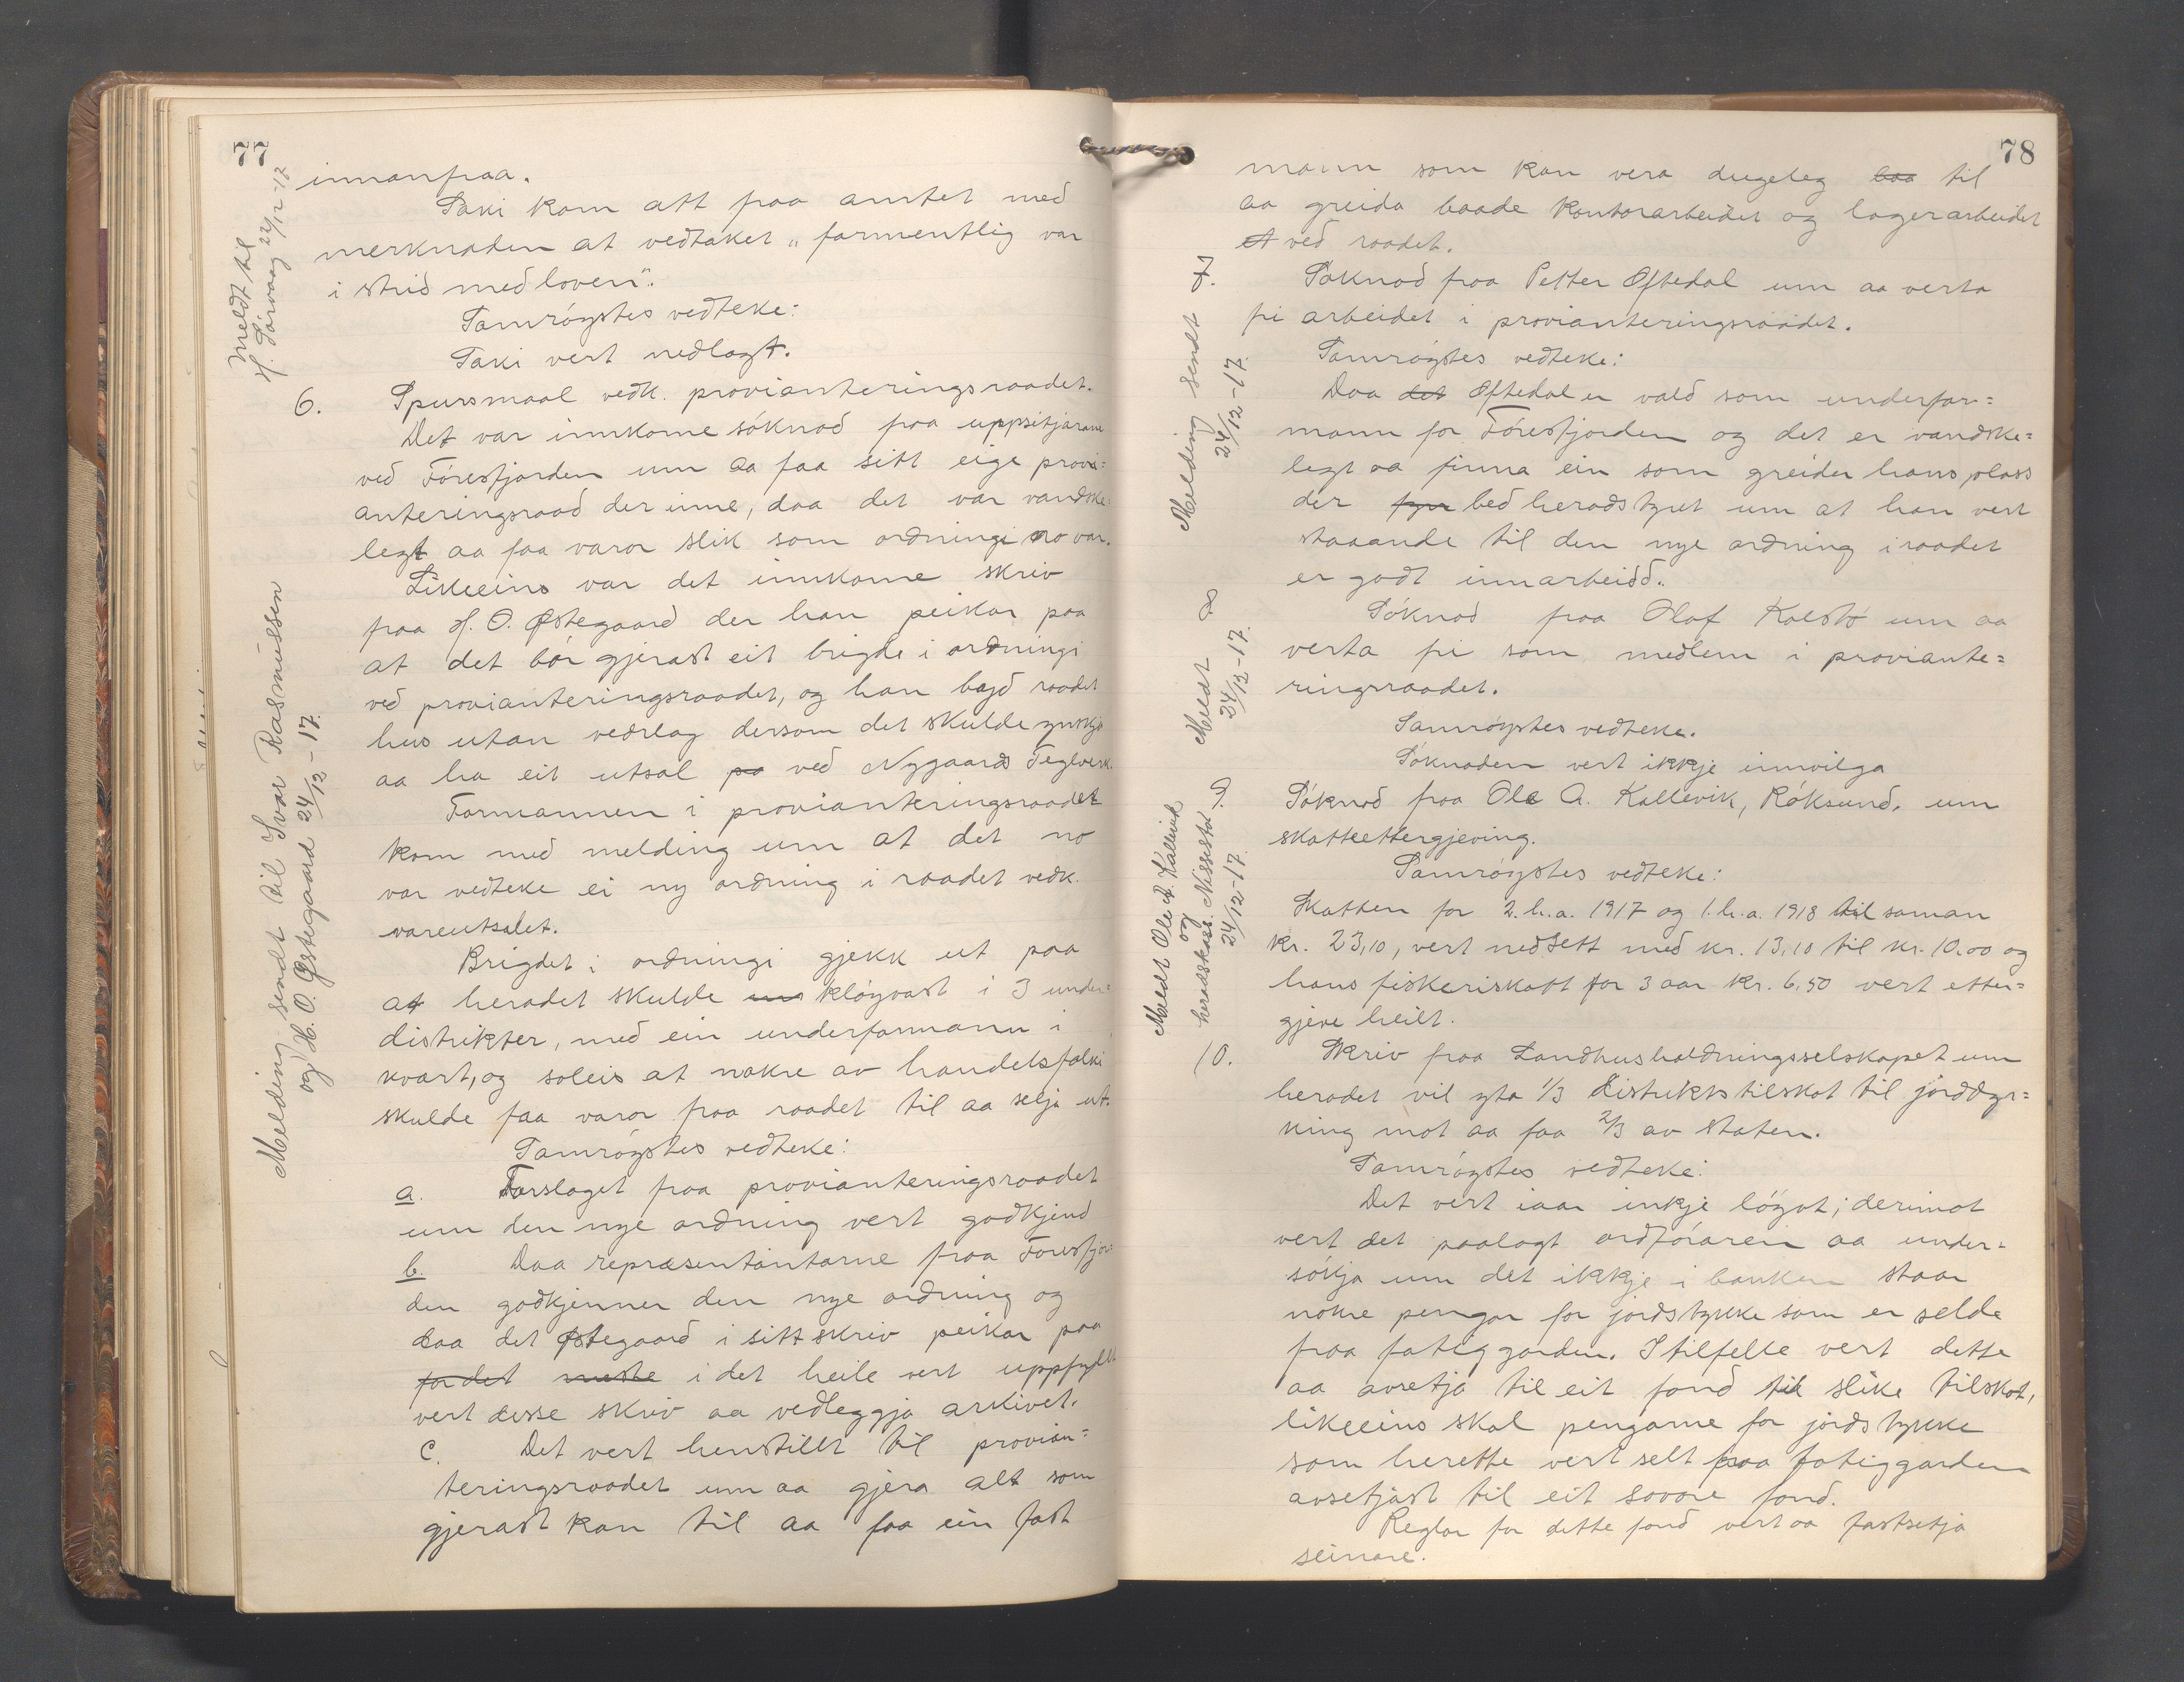 77
innanfraa.
Saki kom att fraa amtet med
merknaden at vedtaket „formentlig var
i strid med loven“.
Samröystes vedteke:
Saki vert nedlagt.
6. Spursmaal vedk. provianteringsraadet.
Det var innkome söknad fraa uppsitjarane
ved Förresfjorden um aa faa sitt eige provi=
anteringsraad der inne, daa det var vandske=
legt aa faa varor slik som ordningi no var.
Likeeins var det innkome skriv
fraa H. O. Østegaard der han peikar paa
at det bör gjerast eit brigde i ordningi
ved provianteringsraadet, og han bayd raadet
hus utan vederlag dersom det skulde ynskja
aa ha eit utsal pa ved Nygaards Teglverk.
Formannen i provianteringsraadet
kom med melding um at det no
var vedteke ei ny ordning i raadet vedk.
vareutsalet.
Brigdet i ordningi gjekk ut paa
at heradet skulde klöyvast i 3 under=
distrikter, med ein underformann i
kvart, og soleis at nokre av handelsfolki
skulde faa varor fraa raadet til aa selja ut.
Samröystes vedteke:
a. Forslaget fraa provianteringsraadet
um den nye ordning vert godkjend
b. Daa repræsentantarne fraa Föresfjor=
den godkjenner den nye ordning og
daa det Østegaard i sitt skriv peikar paa
for det meste i det heile vert uppfyllt
vert desse skriv aa vedleggja arkivet.
c. Det vert henstillt til provian=
teringsraadet um aa gjera alt som
gjerast kan til aa faa ein fast
meldt til
H. Sörvaag 24/12-17
Melding sendt til Svar Rasmussen
og H. O. Østegaard 24/12-17.
78
mann som kan vera dugeleg baa til
aa greida baade kontorarbeidet og lagerarbeidet
et ved raadet.
7. Söknad fraa Petter Oftedal um aa verta
fri arbeidet i provianteringsraadet.
Samröystes vedteke:
Daa det Oftedal er vald som underfor=
mann for Föresfjorden og det er vandske=
legt aa finna ein som greider hans plass
der fyr bed heradstyret um at han vert
staaande til den nye ordning i raadet
er godt innarbeidd.
8. Söknad fraa Olaf Kalstö um aa
verta fri som medlem i proviante=
ringsraadet.
Samröystes vedteke.
Söknaden vert ikkje innvilga
9. Söknad fraa Ole A. Kallevik, Röksund, um
skatteettergjeving.
Samröystes vedteke:
Skatten for 2. h.a. 1917 og 1. h.a. 1918 til saman
kr. 23,10, vert nedsett med kr. 13,10 til kr. 10.00 og
hans fiskeriskatt for 3 aar kr. 6,50 vert etter=
gjeve heilt.
10. Skriv fraa Landhusholdningsselskapet um
heradet vil yta 1/3 distriktstilskot til jorddyr=
king mot aa faa 2/3 av staten.
Samröystes vedteke:
Det vert iaar inkje löyvt; derimot
vert det paalagt ordföraren aa under=
sökja um det ikkje i banken staar
nokre pengar for jordstykke som er selde
fraa fatiggarden. I tilfelle vert dette
aa avsetja til eit fond til slike tilskot,
likeeins skal pengarne for jordstykke
som herette vert selt fraa fatiggarden
avsetjast til eit sovore fond.
Reglar for dette fond vert aa fastsetja
seinare.
Melding sendt
24/12-17.
Meldt
24/12-17.
Meldt Ole A. Kallevik
og
heradskass. Nissestad
24/12-17.